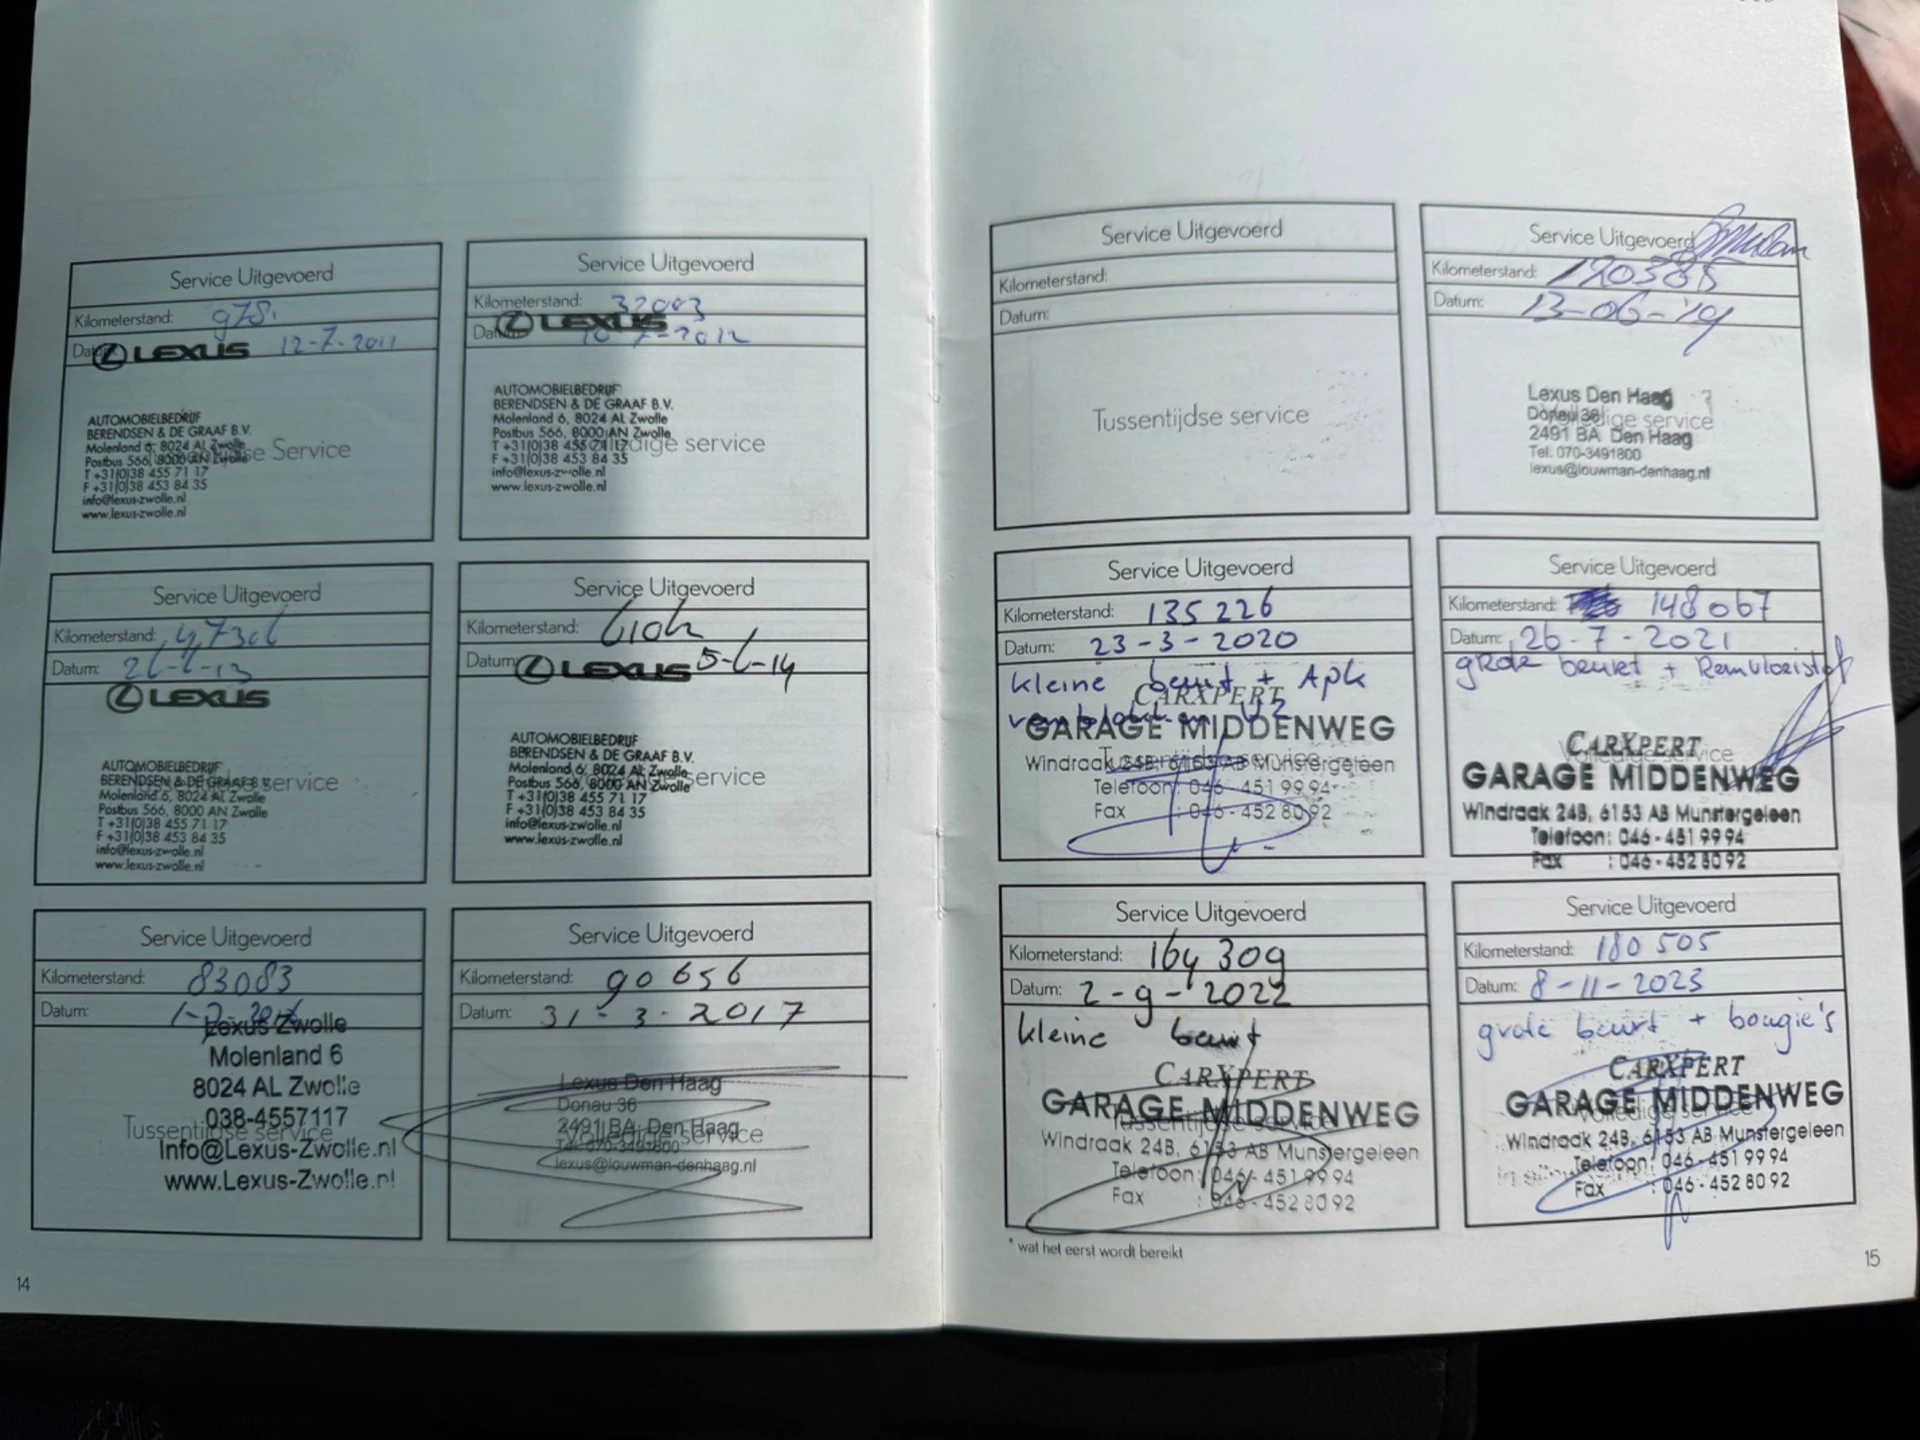 Service Uitgevoerd
Kilometerstand: 978.
12-7-2011
LEXUS
AUTOMOBIELBEDRIJF
BERENDSEN & DE GRAAF B.V.
Molenland 6, 8024 AL Zwolle
Postbus 566, 8000 AN Zwolle
Service
T +31(0)38 455 71 17
F +31(0)38 453 84 35
info@lexus-zwolle.nl
www.lexus-zwolle.nl
Service Uitgevoerd
Kilometerstand: 32003
LEXUS
10-7-2012
AUTOMOBIELBEDRIJF
BERENDSEN & DE GRAAF B.V.
Molenland 6, 8024 AL Zwolle
Postbus 566, 8000 AN Zwolle
T +31(0)38 455 71 17
service
F +31(0)38 453 84 35
info@lexus-zwolle.nl
www.lexus-zwolle.nl
Service Uitgevoerd
Kilometerstand:
Datum:
LEXUS
AUTOMOBIELBEDRIJF
BERENDSEN & DE GRAAF B.V.
service
Molenland 6, 8024 AL Zwolle
Postbus 566, 8000 AN Zwolle
T +31(0)38 455 71 17
F +31(0)38 453 84 35
info@lexus-zwolle.nl
www.lexus-zwolle.nl
Service Uitgevoerd
Kilometerstand:
Datum: 5-6-14
LEXUS
AUTOMOBIELBEDRIJF
BERENDSEN & DE GRAAF B.V.
Molenland 6, 8024 AL Zwolle
service
Postbus 566, 8000 AN Zwolle
T +31(0)38 455 71 17
F +31(0)38 453 84 35
info@lexus-zwolle.nl
www.lexus-zwolle.nl
Service Uitgevoerd
Kilometerstand: 83083
Datum:
Lexus Zwolle
Molenland 6
8024 AL Zwolle
038-4557117
Tussentijdse service
Info@Lexus-Zwolle.nl
www.Lexus-Zwolle.nl
Service Uitgevoerd
Kilometerstand: 90656
Datum: 31-3-2017
Lexus Den Haag
Donau 36
2491 BA Den Haag
service
Tel. 070-3491800
lexus@louwman-denhaag.nl
14
Service Uitgevoerd
Kilometerstand:
Datum:
Tussentijdse service
Service Uitgevoerd
Kilometerstand: 120385
Datum: 13-06-'19
Lexus Den Haag
Donau 36
Volledige service
2491 BA Den Haag
Tel. 070-3491800
lexus@louwman-denhaag.nl
Service Uitgevoerd
Kilometerstand: 135226
Datum: 23-3-2020
kleine beurt + Apk
CARXPERT
GARAGE MIDDENWEG
Tussentijdse service
Windraak 24B, 6153 AB Munstergeleen
Telefoon : 046 - 451 99 94
Fax : 046 - 452 80 92
Service Uitgevoerd
Kilometerstand: 148067
Datum: 26-7-2021
grote beurt + Remvloeistof
CARXPERT
Volledige service
GARAGE MIDDENWEG
Windraak 24B, 6153 AB Munstergeleen
Telefoon: 046 - 451 99 94
Fax : 046 - 452 80 92
Service Uitgevoerd
Kilometerstand: 164309
Datum: 2-9-2022
kleine beurt
CARXPERT
GARAGE MIDDENWEG
Tussentijdse service
Windraak 24B, 6153 AB Munstergeleen
Telefoon : 046 - 451 99 94
Fax : 046 - 452 80 92
Service Uitgevoerd
Kilometerstand: 180505
Datum: 8-11-2023
grote beurt + bougie's
CARXPERT
GARAGE MIDDENWEG
Volledige service
Windraak 24B, 6153 AB Munstergeleen
Telefoon: 046 - 451 99 94
Fax : 046 - 452 80 92
* wat het eerst wordt bereikt
15